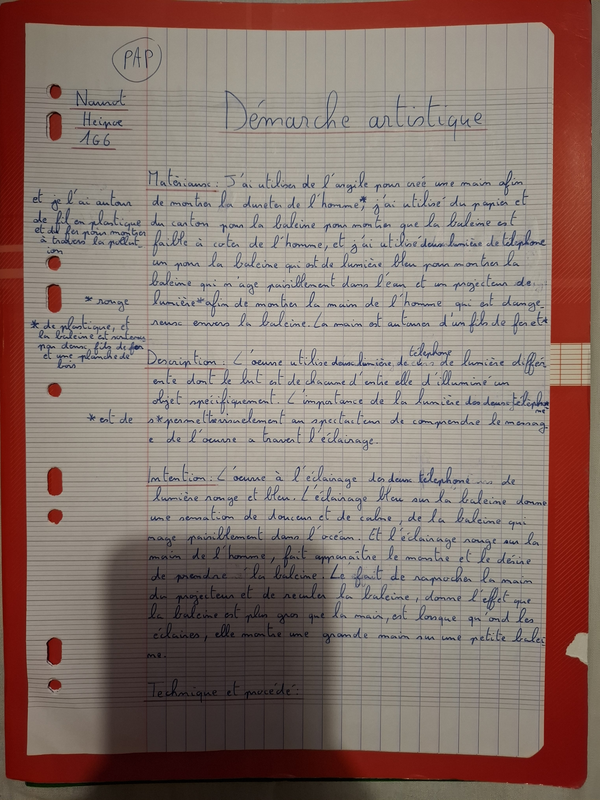 PAP
Heinoe
1G6
Démarche artistique
Matériaux : J'ai utiliser de l'argile pour créé une main afin
de montrer la dureter de l'homme*, j'ai utilisé du papier et
du carton pour la baleine pour montrer que la baleine est
faible à coter de l'homme, et j'ai utilisé deux lumière de téléphone
un pour la baleine qui est de lumière bleu pour montrer la
baleine qui nage paisiblement dans l'eau et un projecteur de
lumière* afin de montrer la main de l'homme qui est dange
reuse envers la baleine. La main est autourer d'un fils de fer et*
et je l'ai autour
de fil en plastique
et de fer pour montrer
à travers la pollut-
ion
* rouge
* de plastique, et
la baleine est soutenue
par deux fils de fer
et une planche de
bois
Description : L'oeuvre utilise deux lumière de téléphone de lumière différ
ente dont le but est de chacune d'entre elle d'illuminé un
objet spécifiquement. L'importance de la lumière des deux télépho
ne
s* permettre visuellement au spectacteur de comprendre le messag
e de l'oeuvre a travert l'éclairage.
* est de
Intention : L'oeuvre à l'éclairage des deux téléphone de
lumière rouge et bleu. L'éclairage bleu sur la baleine donne
une sensation de douceur et de calme, de la baleine qui
nage paisiblement dans l'océan. Et l'éclairage rouge sur la
main de l'homme, fait apparaître le monstre et le désire
de prendre la baleine. Le fait de raprocher la main
du projecteur et de reculer la baleine, donne l'effet que
la baleine est plus gros que la main, est lorsque qu'ond les
éclaires, elle montre une grande main sur une petite balei
ne.
Technique et procédé :